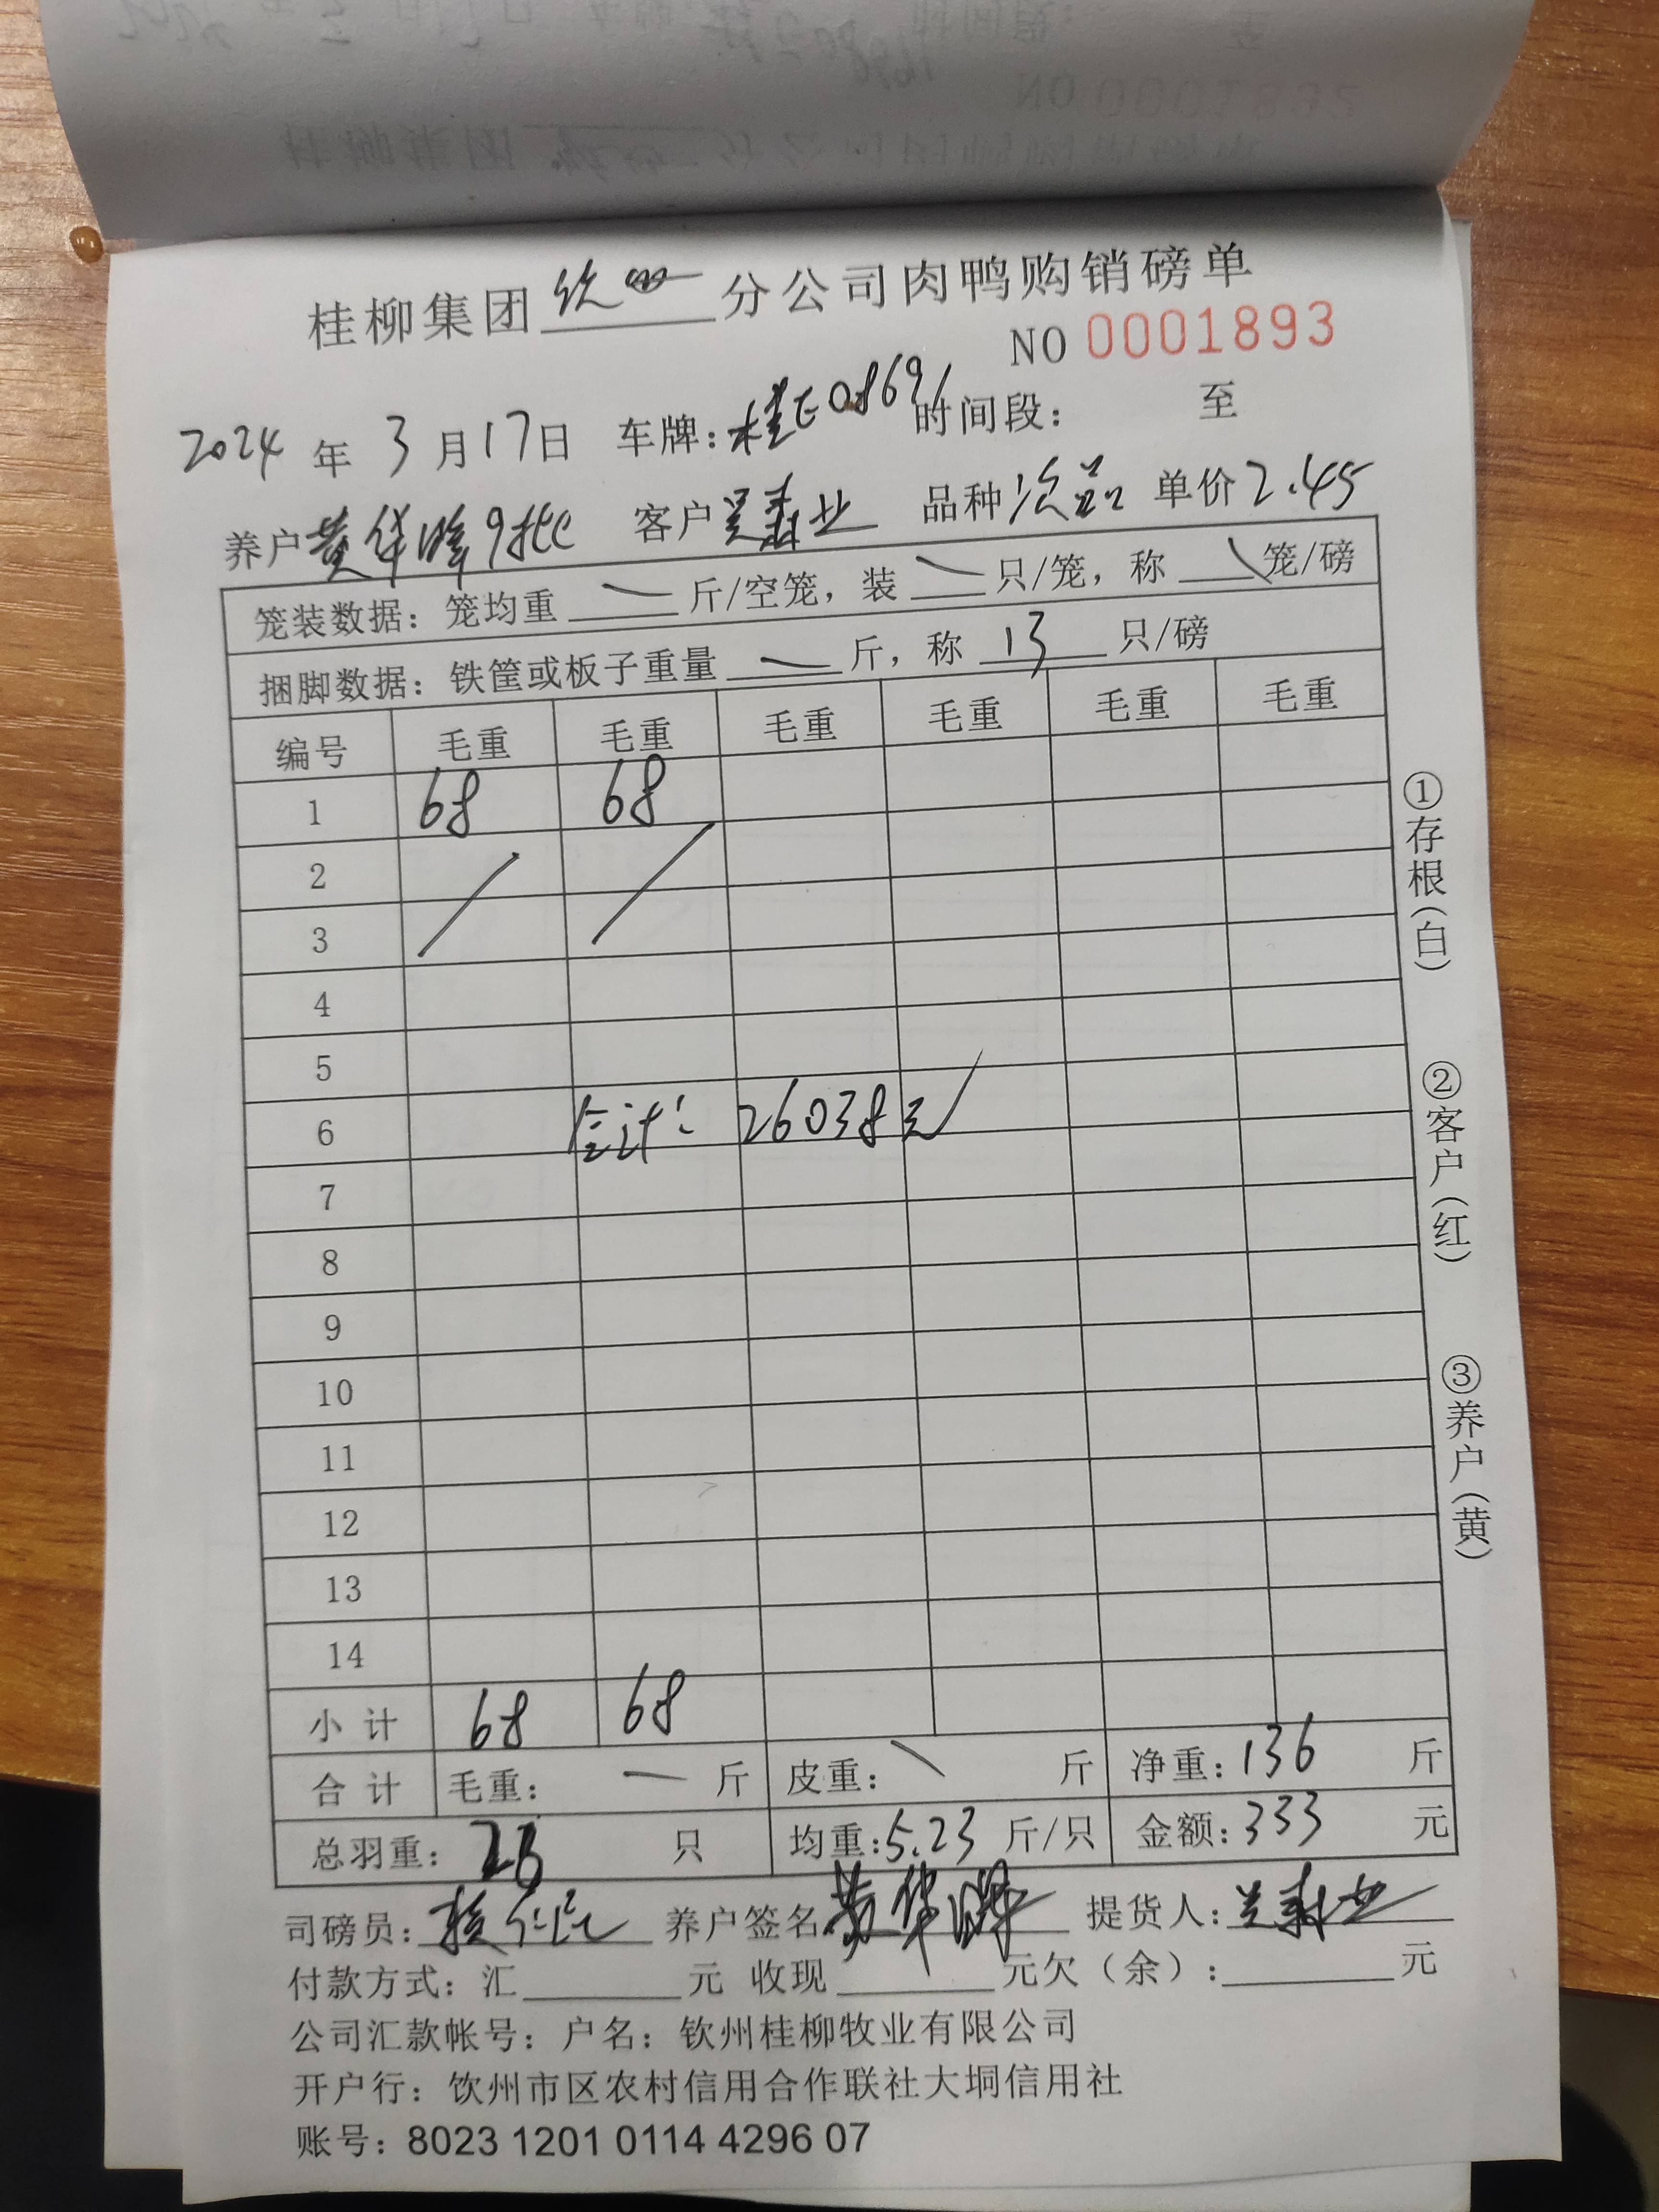 桂柳集团 钦州 分公司肉鸭购销磅单
NO 0001893
2024 年 3 月 17 日 车牌：桂E08691 时间段： 至
养户 黄华晖 9批 客户 吴寿业 品种 次品 单价 2.45
笼装数据：笼均重 斤/空笼，装 只/笼，称 笼/磅
捆脚数据：铁筐或板子重量 斤，称 13 只/磅
编号 毛重 毛重 毛重 毛重 毛重 毛重
1 68 68
2
3
4
5
6 合计：26038元
7
8
9
10
11
12
13
14
小计 68 68
合计 毛重： 斤 皮重： 斤 净重：136 斤
总羽重：26 只 均重：5.23 斤/只 金额：333 元
司磅员： 养户签名 黄华晖 提货人：吴寿业
付款方式：汇 元 收现 元欠（余）： 元
公司汇款帐号：户名：钦州桂柳牧业有限公司
开户行：钦州市区农村信用合作联社大垌信用社
账号：8023 1201 0114 4296 07
①存根（白）
②客户（红）
③养户（黄）